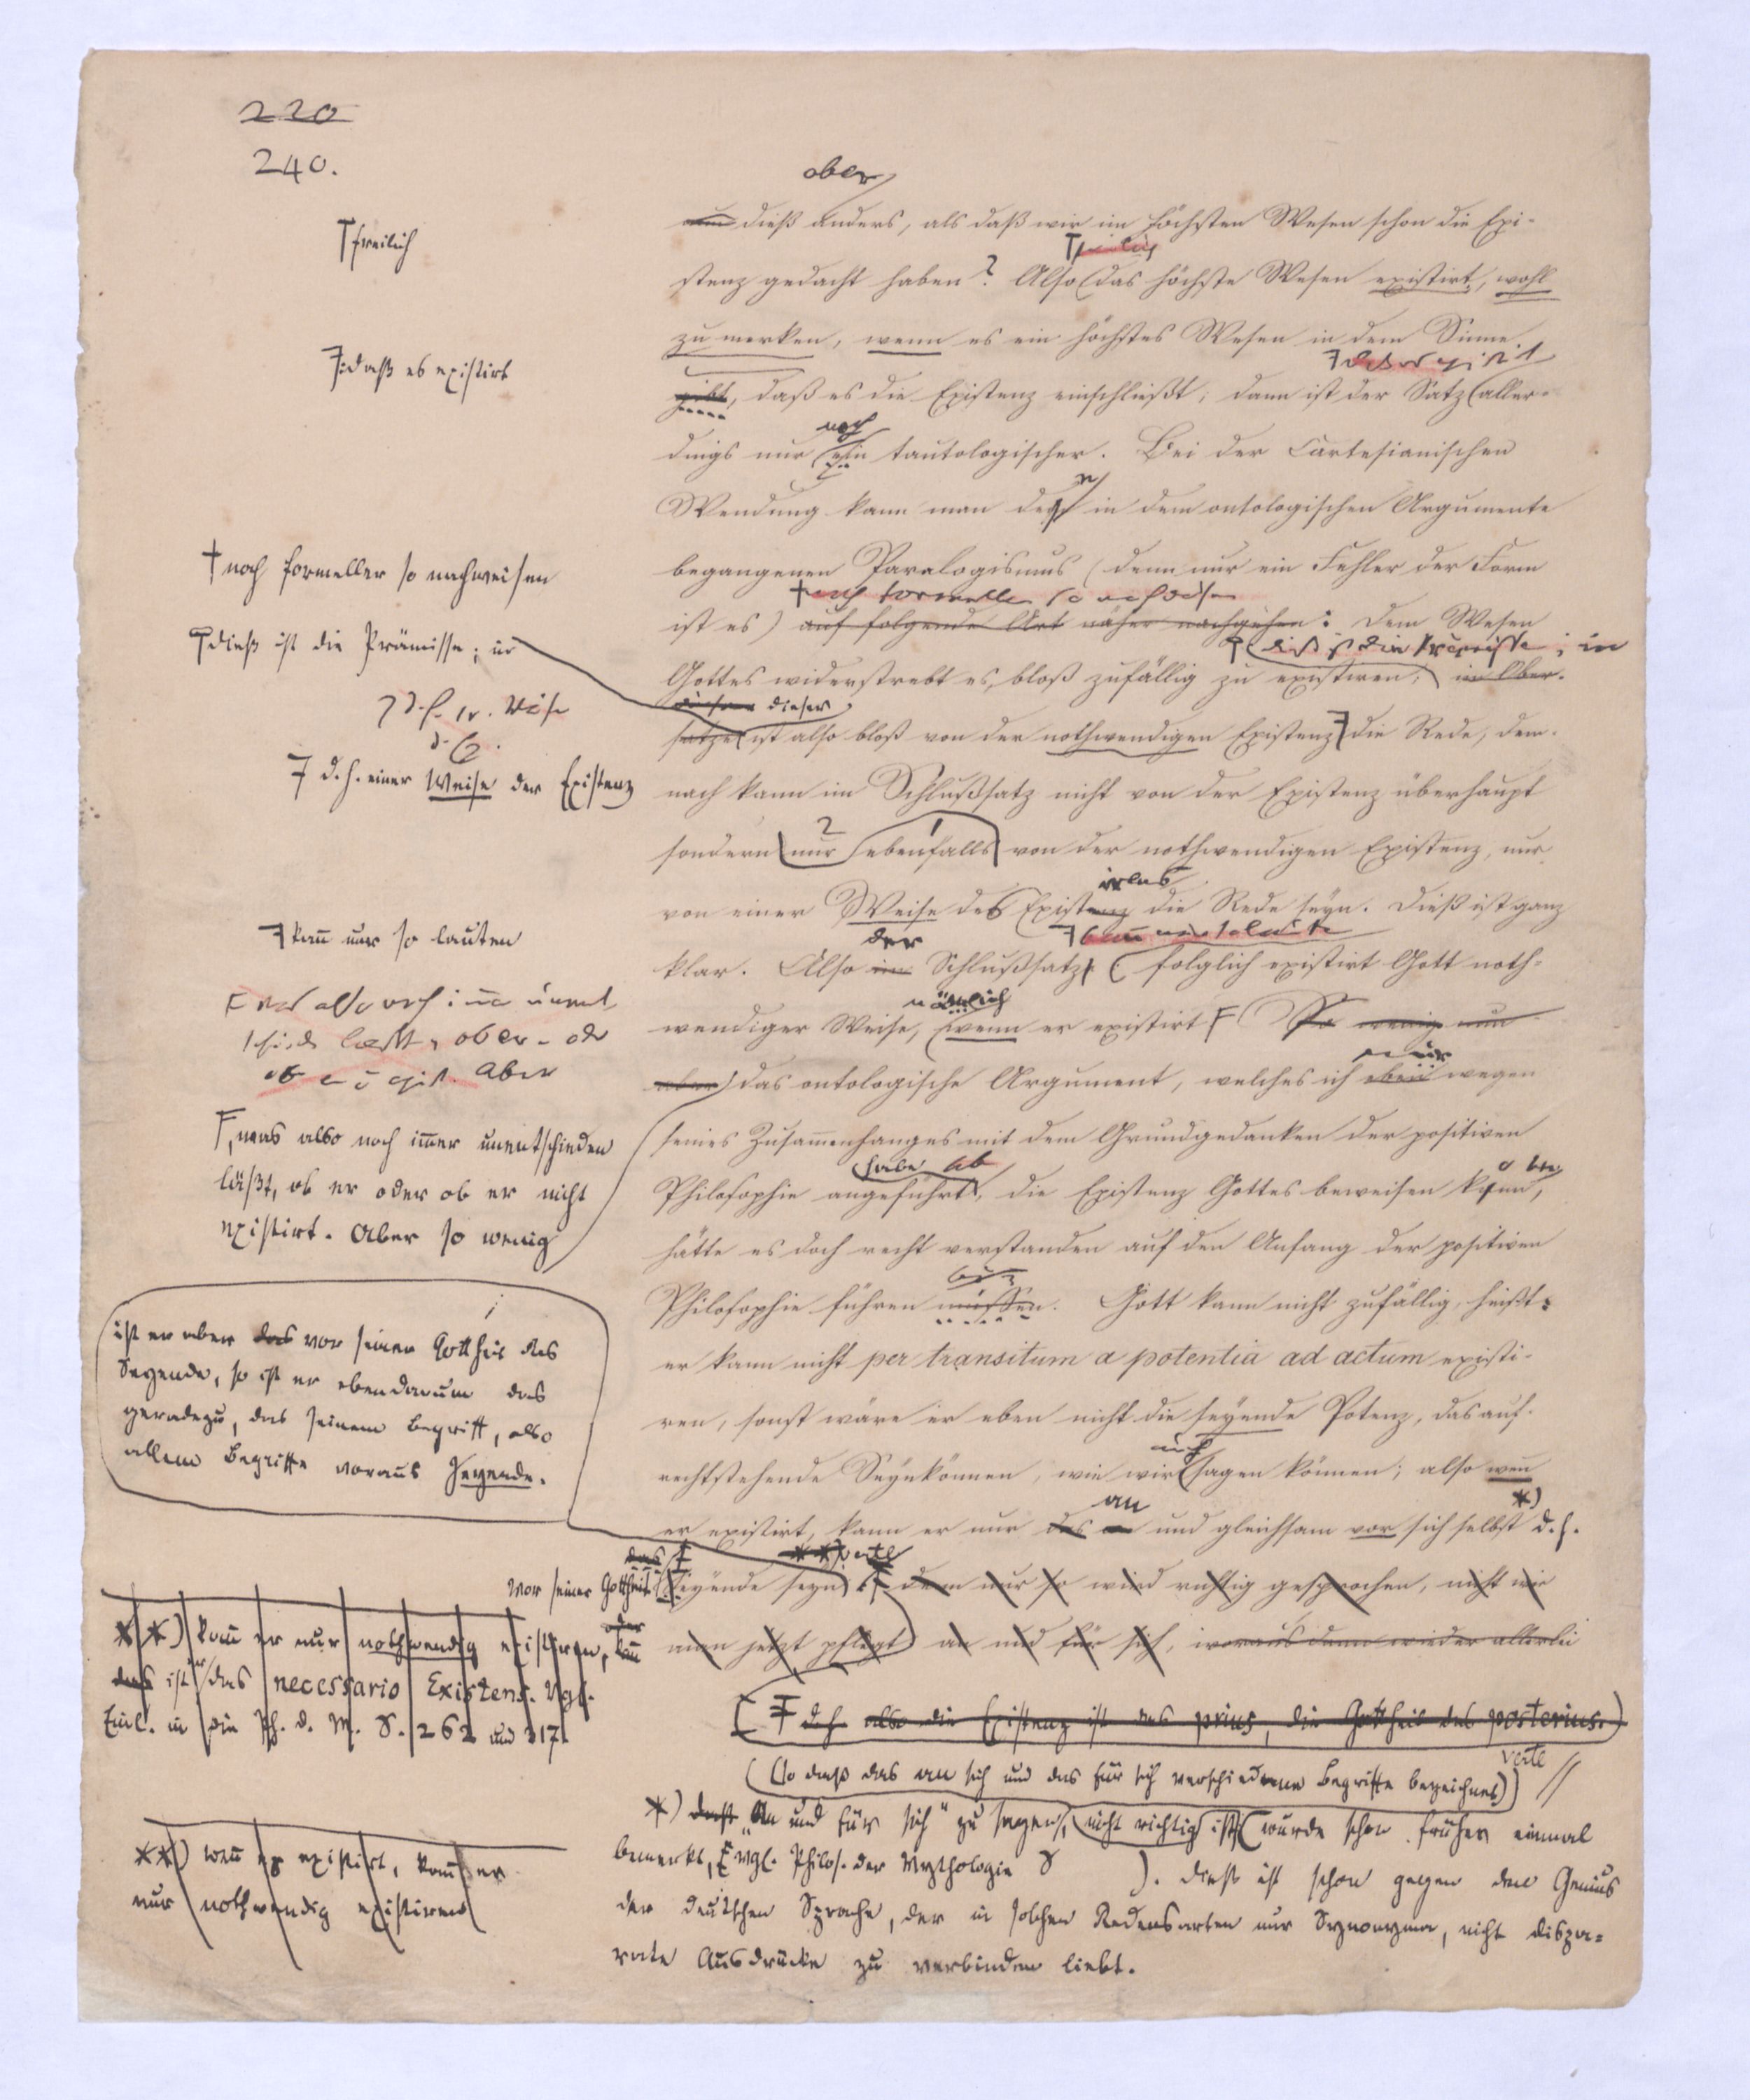 220
240.
aber
nun dieß anders, als daß wir im höchsten Wesen schon die Exi-
⊤ freilich
stenz gedacht haben? Also (das höchste Wesen existirt, wohl
zu merken, wenn es ein höchstes Wesen in dem Sinne
: daß es existirt
gibt, daß es die Existenz einschließt, dann ist der Satz (aller-
noch
dings nur ein tautologischer. Bei der Cartesianischen
n
Wendung kann man den in dem ontologischen Argumente
begangenen Paralogismus (denn nur ein Fehler der Form
† noch formeller so nachweisen
ist es) auf folgende Art näher nachgehen: Dem Wesen
dieß ist die Prämisse; in
Gottes widerstrebt es, bloß zufällig zu existiren; im Ober-
dieser
satze ist also bloß von der nothwendigen Existenz die Rede, dem-
d. h. einer Weise der Existenz
nach kann im Schlußsatz nicht von der Existenz überhaupt
2 1
sondern nur ebenfalls von der nothwendigen Existenz, nur
irens
von einer Weise des Existenz die Rede seyn. Dieß ist ganz
kann nur so lauten
der
klar. Also im Schlußsatz ( folglich existirt Gott noth-
nämlich
wendiger Weise, (wenn er existirt So wenig nun
aber) das ontologische Argument, welches ich eben wegen
F, was also noch immer unentschieden
läßt, ob er oder ob er nicht
existirt. Aber so wenig
seines Zusammenhanges mit dem Grundgedanken der positiven
habe
Philosophie angeführt, die Existenz Gottes beweisen kann,
hätte es doch recht verstanden auf den Anfang der positiven
Philosophie führen müssen. Gott kann nicht zufällig, heißt:
er kann nicht per transitum a potentia ad actum existi-
ren, sonst wäre er eben nicht die seyende Potenz, das auf-
auch
rechtstehende Seynkönnen, wie wir (sagen können; also wenn
an *)
er existirt, kann er nur das an und gleichsam vor sich selbst d. h.
vor seiner Gottheit Seyende seyn denn nur so wird richtig gesprochen, nicht wie
man jetzt pflegt an und für sich, woraus dann wieder allerlei
ist er aber das vor seiner Gottheit das
Seyende, so ist er ebendarum das
geradezu, das seinem Begriff, also
allem Begriffe voraus Seyende.
**) kann er nur nothwendig existiren,
das ist das necessario Existens. Vgl.
Einl. in die Ph. d. M. S. 262 und 317
**) wenn er existirt, kann er
nur nothwendig existiren
d. h. also die Existenz ist das prius, die Gottheit das posterius.)
verte
(so daß das an sich und das für sich verschiedene Begriffe bezeichnet)
*) daß „An und für sich" zu sagen, nicht richtig ist (wurde schon früher einmal
bemerkt, vgl. Philos. der Mythologie S ). Dieß ist schon gegen den Genius
der deutschen Sprache, der in solchen Redensarten nur Synonyma, nicht dispa-
rate Ausdrücke zu verbinden liebt.